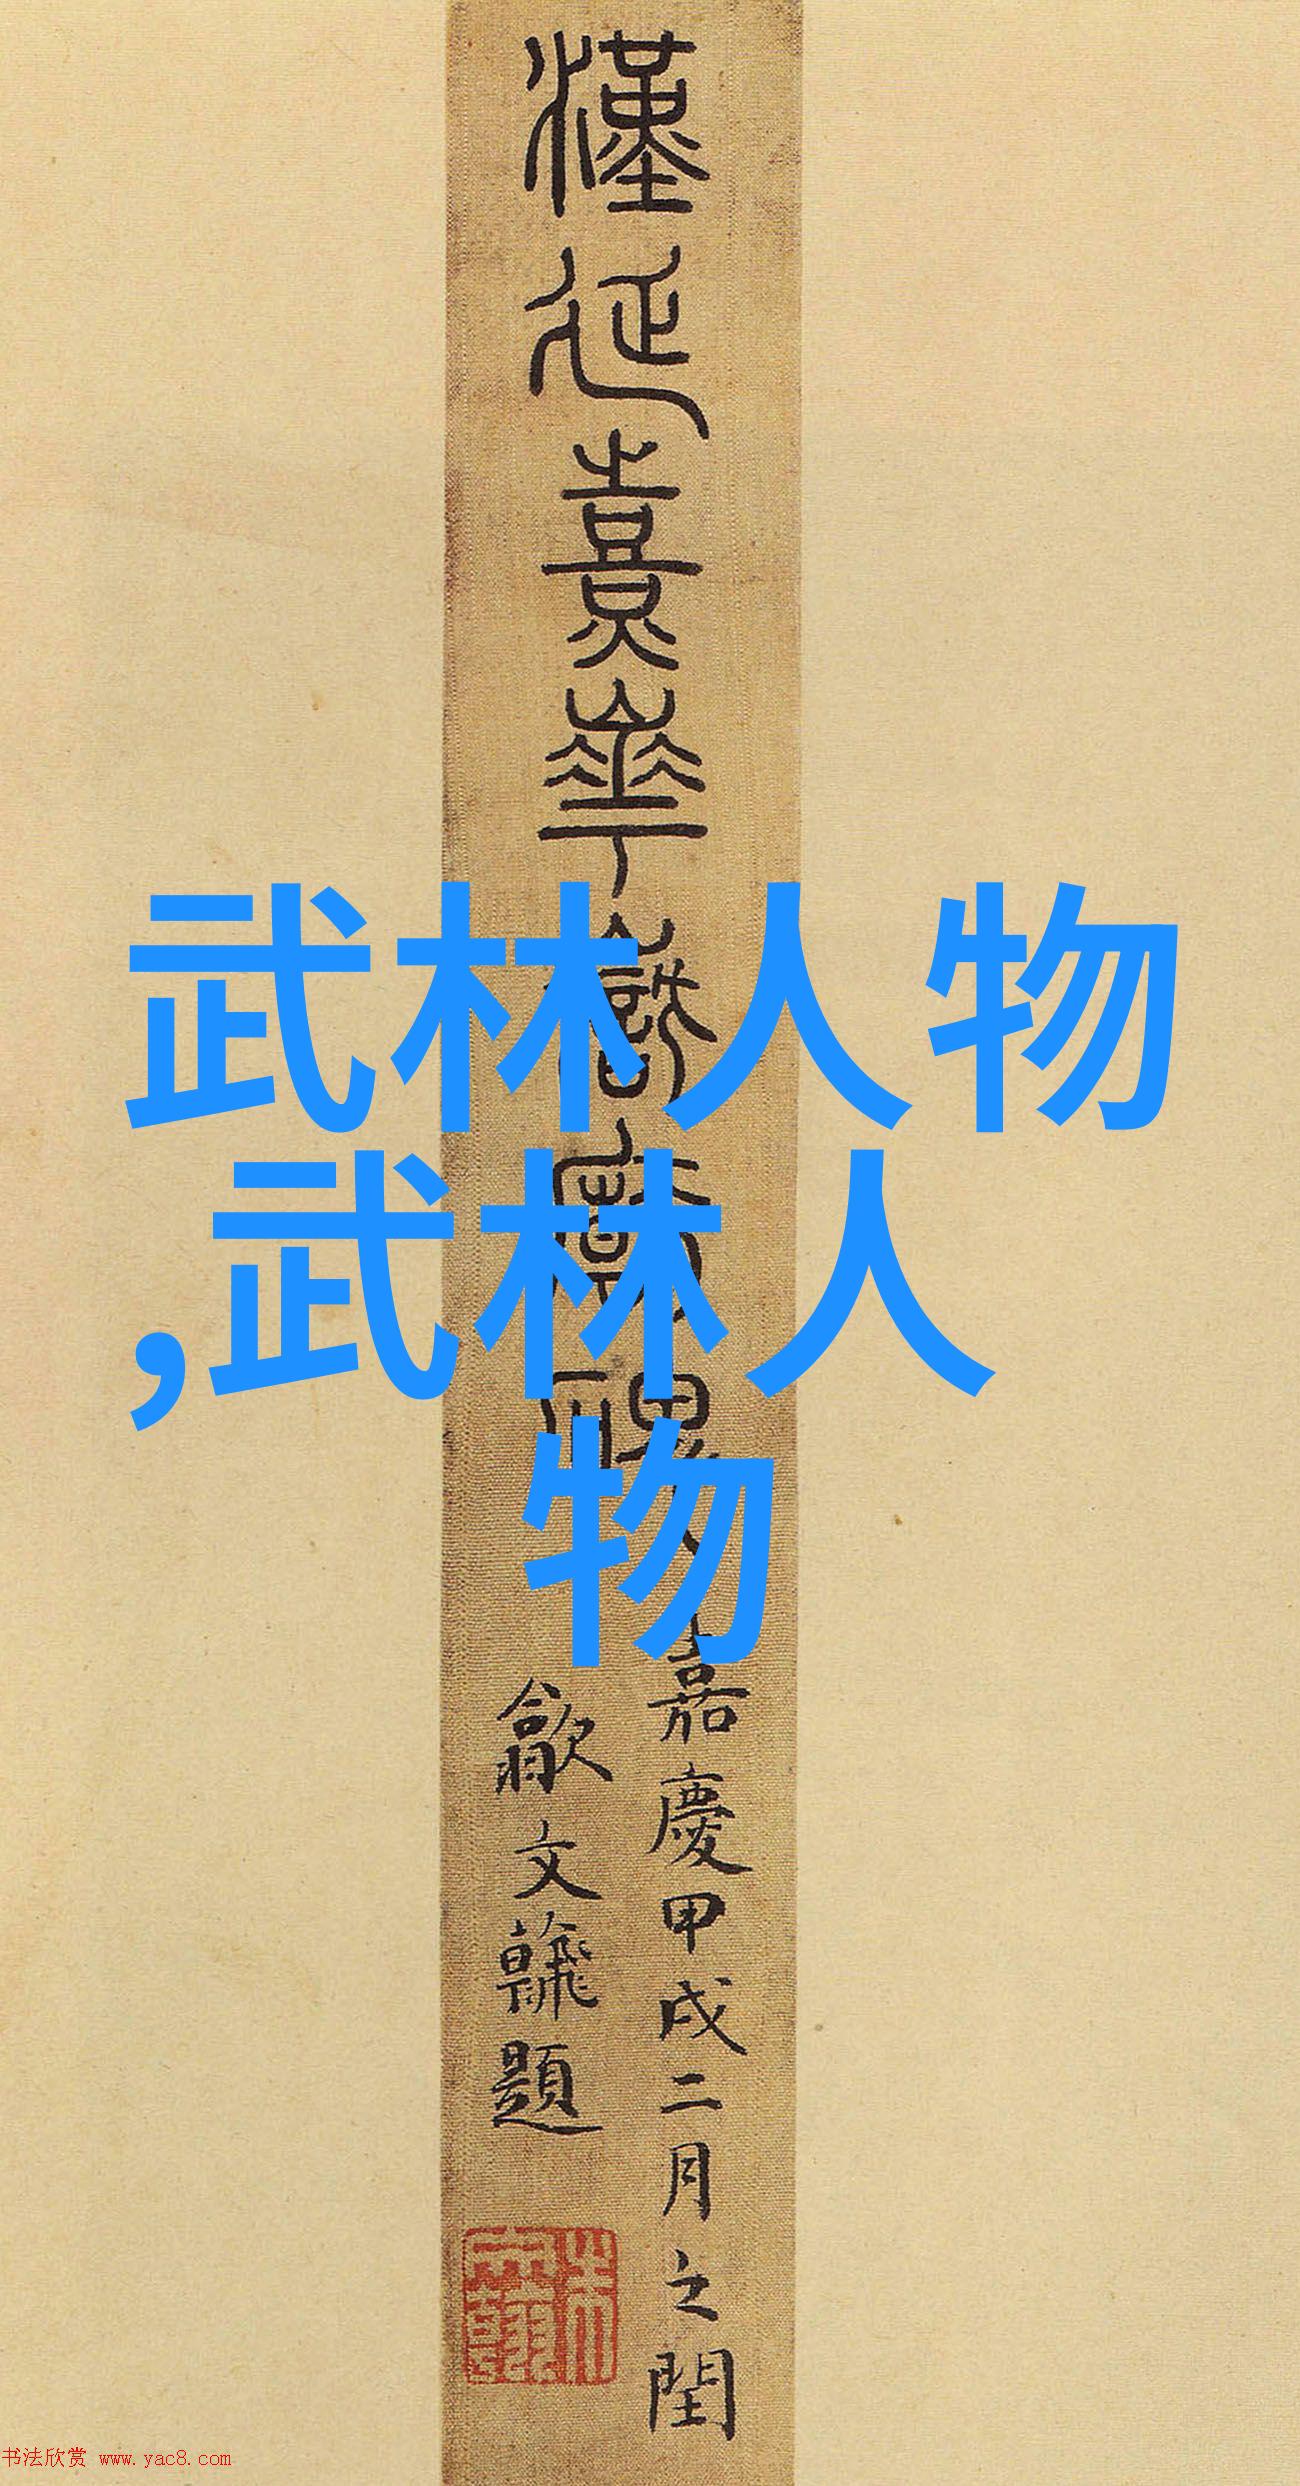 漢延熹華嶽廟碑
嘉慶甲戌二月之閏
歙文題
武林人物
,武林人
物
书法欣赏 www.yac8.com